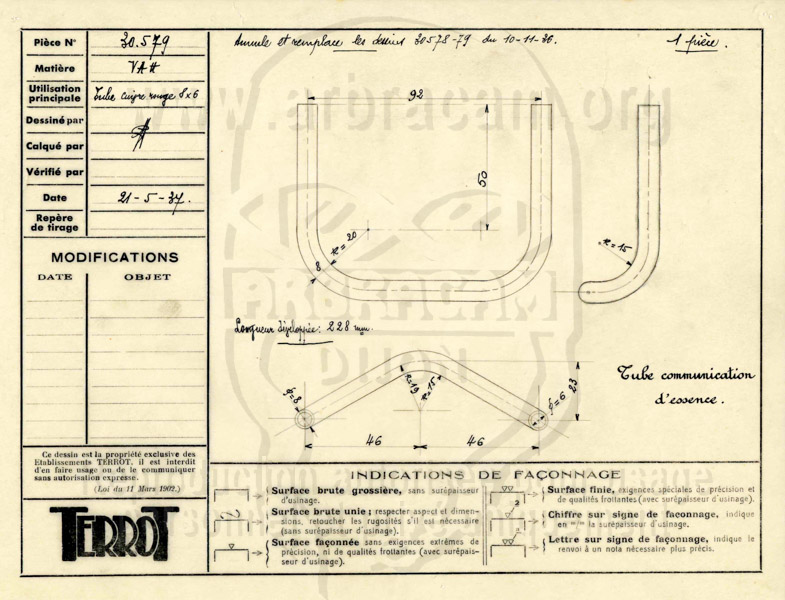 Pièce N° 30.579
Matière VAH
Utilisation principale Tube cuivre rouge 8x6
Dessiné par
Calqué par
Vérifié par
Date 21-5-37.
Repère de tirage
MODIFICATIONS
DATE OBJET
Ce dessin est la propriété exclusive des
Etablissements TERROT, il est interdit
d'en faire usage ou de le communiquer
sans autorisation expresse.
(Loi du 11 Mars 1902.)
TERROT
Annule et remplace les dessins 30578-79 du 10-11-36.
1 pièce.
www.arbracam.org
92
50
R=20
8
R=15
ARBRACAM
Longueur développée: 228 mm.
R=19
R=15
φ=8
φ=6
23
46
46
Tube communication
d'essence.
INDICATIONS DE FAÇONNAGE
Surface brute grossière, sans surépaisseur
d'usinage.
Surface brute unie; respecter aspect et dimen-
sions, retoucher les rugosités s'il est nécessaire
(sans surépaisseur d'usinage).
Surface façonnée sans exigences extrêmes de
précision, ni de qualités frottantes (avec surépais-
seur d'usinage).
Surface finie, exigences spéciales de précision et
de qualités frottantes (avec surépaisseur d'usinage).
Chiffre sur signe de faconnage, indique
en m/m la surépaisseur d'usinage.
Lettre sur signe de façonnage, indique le
renvoi à un nota nécessaire plus précis.